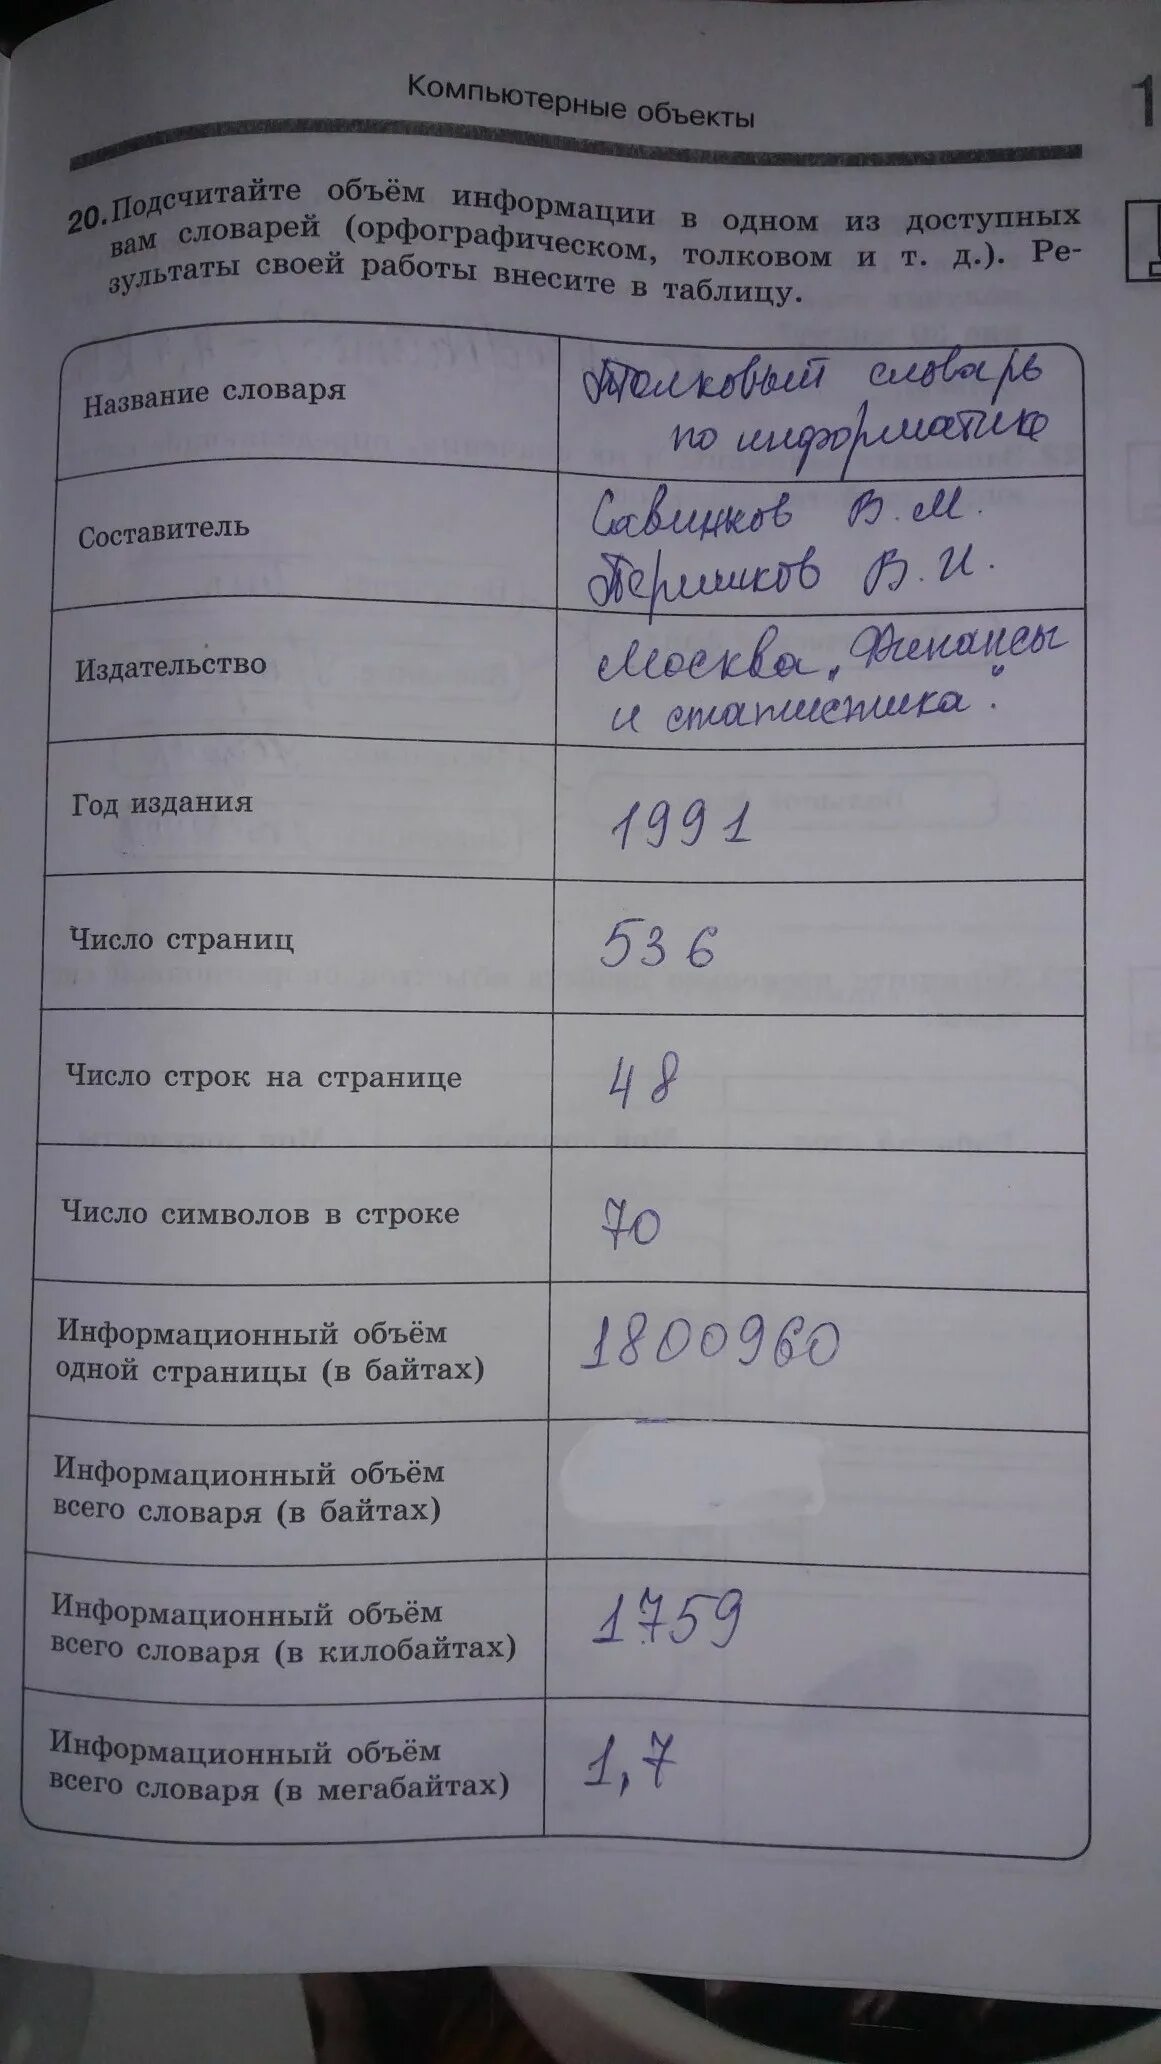 Компьютерные объекты
1
20. Подсчитайте объём информации в одном из доступных
вам словарей (орфографическом, толковом и т. д.). Ре-
зультаты своей работы внесите в таблицу.
Название словаря
Толковый словарь
по информатике
Составитель
Савинков В. М.
Першиков В. И.
Издательство
Москва „Финансы
и статистика".
Год издания
1991
Число страниц
536
Число строк на странице
48
Число символов в строке
70
Информационный объём
одной страницы (в байтах)
1800960
Информационный объём
всего словаря (в байтах)
Информационный объём
всего словаря (в килобайтах)
1759
Информационный объём
всего словаря (в мегабайтах)
1,7